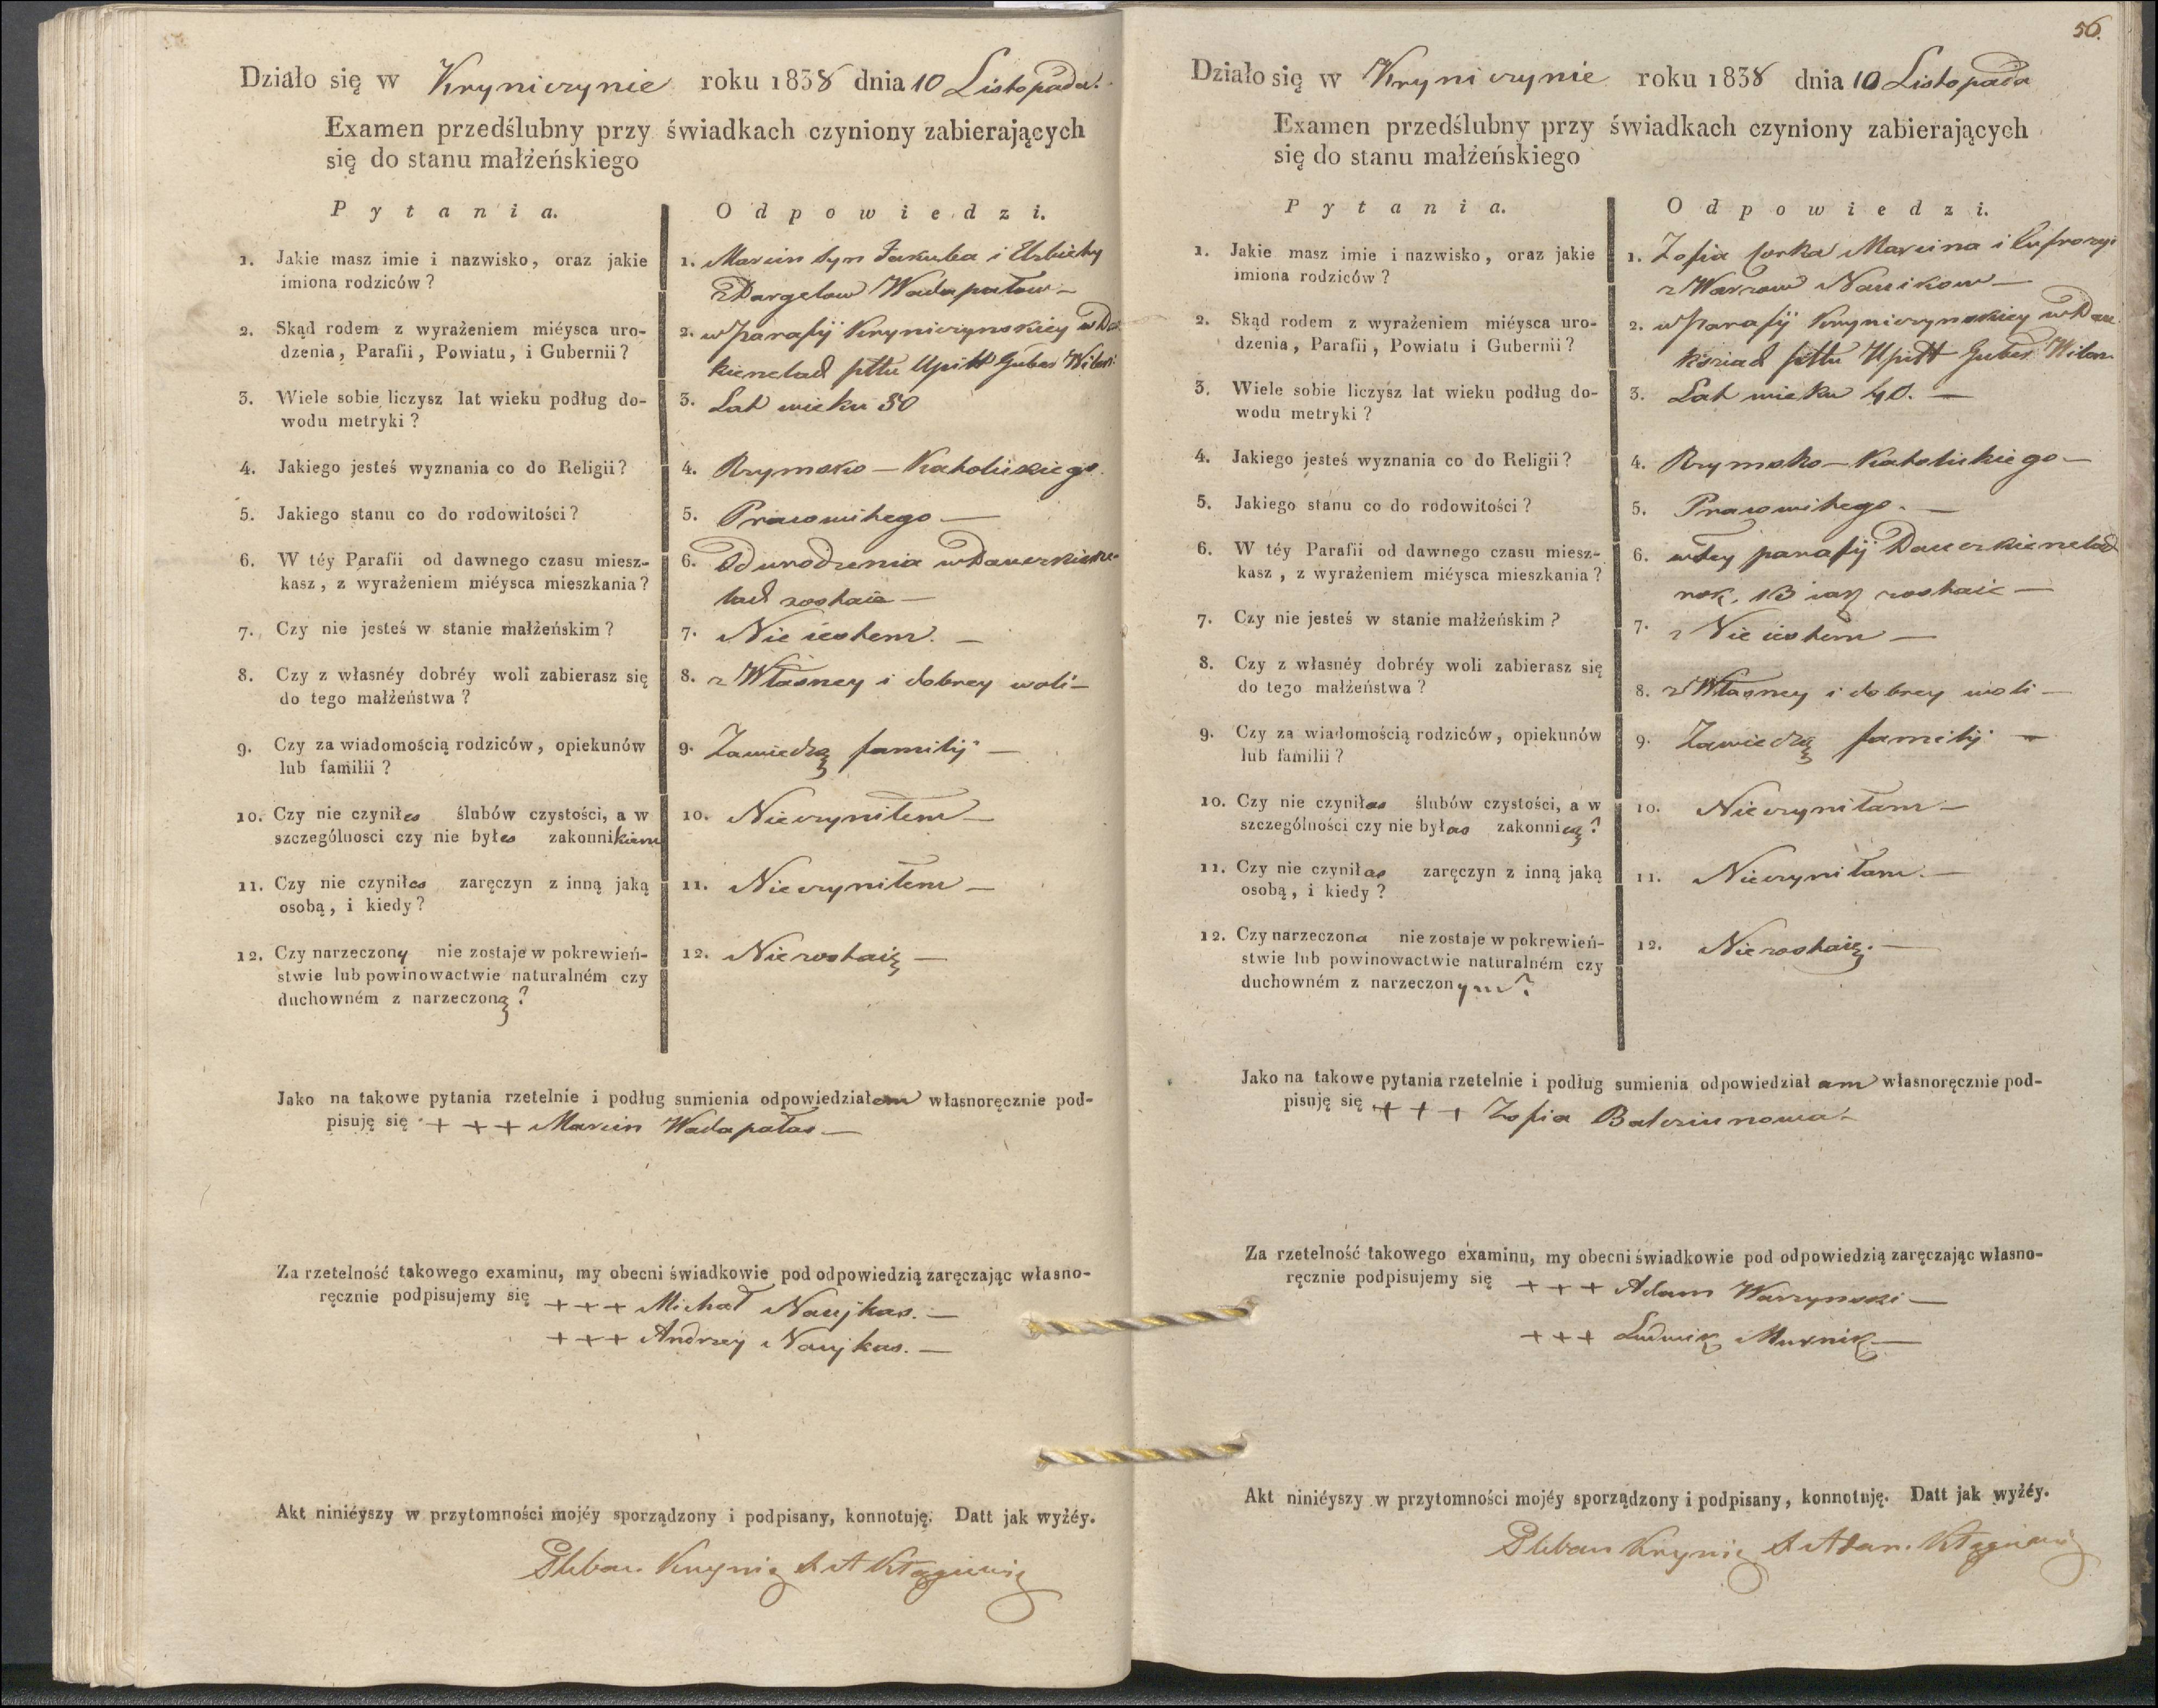 Działo się w Kryniczynie roku 1838 dnia 10 Listopada.
Examen przedślubny przy świadkach czyniony zabierających
się do stanu małżeńskiego
Pytania. Odpowiedzi.
1. Jakie masz imie i nazwisko, oraz jakie
imiona rodziców?
1. Marcin syn Jakuba i Elzbiety
z Dargelow Wadapałow —
2. Skąd rodem z wyrażeniem miéysca uro-
dzenia, Parafii, Powiatu, i Gubernii?
2. w Parafij Kryniczynskiey w
pttu Upitt Guber Wilen.
3. Wiele sobie liczysz lat wieku podług do-
wodu metryki?
3. Lat wieku 50
4. Jakiego jesteś wyznania co do Religii?
4. Rzymsko — Katolickiego.
5. Jakiego stanu co do rodowitości?
5. Pracowitego —
6. W téy Parafii od dawnego czasu miesz-
kasz, z wyrażeniem miéysca mieszkania?
6. Od urodzenia w
zostaie —
7. Czy nie jesteś w stanie małżeńskim?
7. Nie iestem. —
8. Czy z własnéy dobréy woli zabierasz się
do tego małżeństwa?
8. z Własney i dobrey woli —
9. Czy za wiadomością rodziców, opiekunów
lub familii?
9. Zawiedzą familij —
10. Czy nie czyniłes ślubów czystości, a w
szczególnosci czy nie byłes zakonnikiem
10. Nieczyniłem —
11. Czy nie czyniłes zaręczyn z inną jaką
osobą, i kiedy?
11. Nieczyniłem —
12. Czy narzeczony nie zostaje w pokrewień-
stwie lub powinowactwie naturalném czy
duchowném z narzeczoną?
12. Niezostaię —
Jako na takowe pytania rzetelnie i podług sumienia odpowiedziałem własnoręcznie pod-
pisuję się + + + Marcin Wadapałas —
Za rzetelność takowego examinu, my obecni świadkowie pod odpowiedzią zaręczając własno-
ręcznie podpisujemy się + + + Michał Naujkas. —
+ + + Andrzey Naujkas. —
Akt niniéyszy w przytomności mojéy sporządzony i podpisany, konnotuję. Datt jak wyżéy.
Pleban Krynic
56.
Działo się w Kryniczynie roku 1838 dnia 10 Listopada
Examen przedślubny przy świadkach czyniony zabierających
się do stanu małżeńskiego
Pytania. Odpowiedzi.
1. Jakie masz imie i nazwisko, oraz jakie
imiona rodziców?
1. Zofia Corka Marcina i Eufrozyi
Nauikow —
2. Skąd rodem z wyrażeniem miéysca uro-
dzenia, Parafii, Powiatu i Gubernii?
2. w Parafij Kryniczynskiey w
pttu Upitt Guber Wilen
3. Wiele sobie liczysz lat wieku podług do-
wodu metryki?
3. Lat wieku 40. —
4. Jakiego jesteś wyznania co do Religii?
4. Rzymsko — Katolickiego —
5. Jakiego stanu co do rodowitości?
5. Pracowitego. —
6. W téy Parafii od dawnego czasu miesz-
kasz, z wyrażeniem miéysca mieszkania?
6. w tey parafij
rok. 13 iak zostaie —
7. Czy nie jesteś w stanie małżeńskim?
7. Nie iestem —
8. Czy z własnéy dobréy woli zabierasz się
do tego małżeństwa?
8. z Własney i dobrey woli —
9. Czy za wiadomością rodziców, opiekunów
lub familii?
9. Zawiedzą familij —
10. Czy nie czyniłas ślubów czystości, a w
szczególności czy nie byłas zakonnicą?
10. Nieczyniłam —
11. Czy nie czyniłas zaręczyn z inną jaką
osobą, i kiedy?
11. Nieczyniłam. —
12. Czy narzeczona nie zostaje w pokrewień-
stwie lub powinowactwie naturalném czy
duchowném z narzeczonym?
12. Niezostaię. —
Jako na takowe pytania rzetelnie i podług sumienia odpowiedziałam własnoręcznie pod-
pisuję się + + + Zofia Balcziunowa —
Za rzetelność takowego examinu, my obecni świadkowie pod odpowiedzią zaręczając własno-
ręcznie podpisujemy się + + + Adam Warzynski —
+ + + Ludwik Murnik —
Akt niniéyszy w przytomności mojéy sporządzony i podpisany, konnotuję. Datt jak wyżéy.
Pleban Krynic